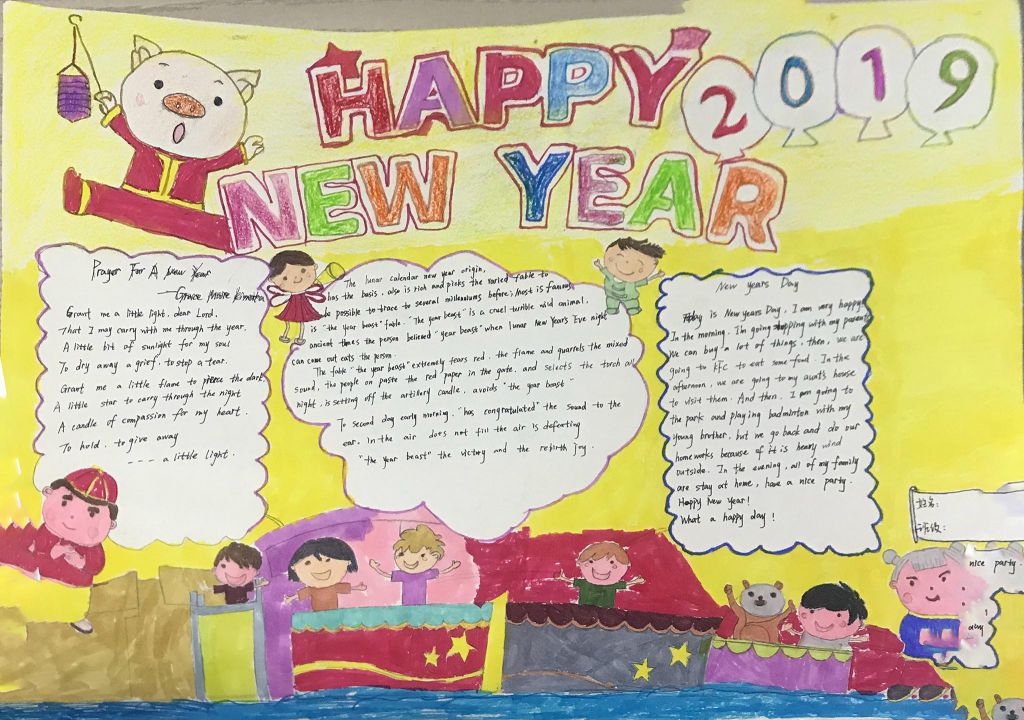 HAPPY 2019
NEW YEAR
Prayer For A New Year
Grace
Grant me a little light, dear Lord,
That I may carry with me through the year.
A little bit of sunlight for my soul
To dry away a grief, to stop a tear.
Grant me a little flame to pierce the dark
A little star to carry through the night
A candle of compassion for my heart.
To hold, to give away
---- a little light.
The lunar calendar new year origin,
has the basis, also is rich and pinks the varied fable to
be possible to trace to several millenniums before; Most is famous
is "the year beast" fable. "The year beast" is a cruel terrible wild animal,
ancient times the person believed "year beast" when lunar New Year's Eve night
can come out eats the person.
The fable "the year beast" extremely fears red, the flame and quarrels the mixed
sound, the people on paste the red paper in the gate, and selects the torch all
night, is setting off the artillery candle, avoids "the year beast"
To second day early morning, "has congratulated" the sound to the
ear. in the air does not fill the air is defeating
"the year beast" the victory and the rebirth joy.
New years Day
Today is New years Day, I am very happy
In the morning. I'm going shopping with my parents
We can buy a lot of things, then, we are
going to KFC to eat some food. In the
afternoon, we are going to my aunt's house
to visit them. And then. I am going to
the park and playing badminton with my
young brother, but we go back and do our
homeworks because of it is heavy wind
outside. In the evening, all of my family
are stay at home, have a nice party.
Happy New Year!
What a happy day!
姓名:
班级:
nice party.